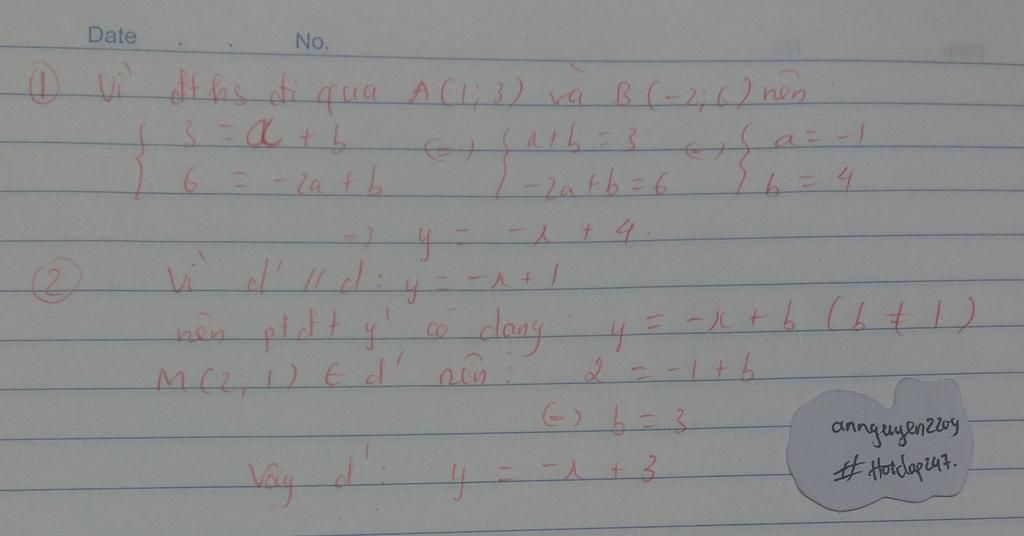 Date . . No.
① Vì đths đi qua A(1;3) và B(-2;6) nên
{ 3 = a + b (=) { a+b = 3 (=) { a = -1
{ 6 = -2a + b { -2a+b = 6 { b = 4
=) y = -x + 4.
② Vì d' // d: y = -x + 1
nên ptđt y' có dạng: y = -x + b (b ≠ 1)
M(2; 1) ∈ d' nên: 2 = -1 + b
(=) b = 3
Vậy d': y = -x + 3
annguyen2209
#Hoidap247.